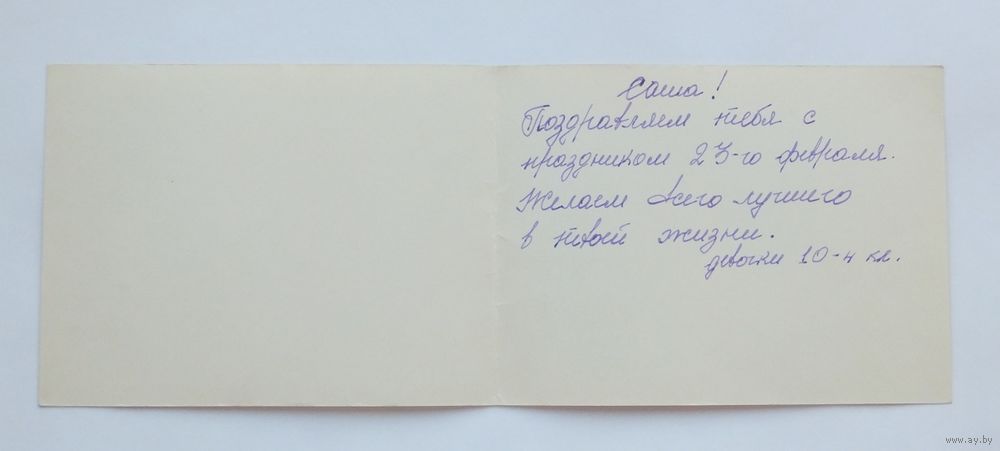 Саша!
Поздравляем тебя с
праздником 23-го февраля.
Желаем всего лучшего
в твоей жизни.
девочки 10-ч кл.
www.ay.by